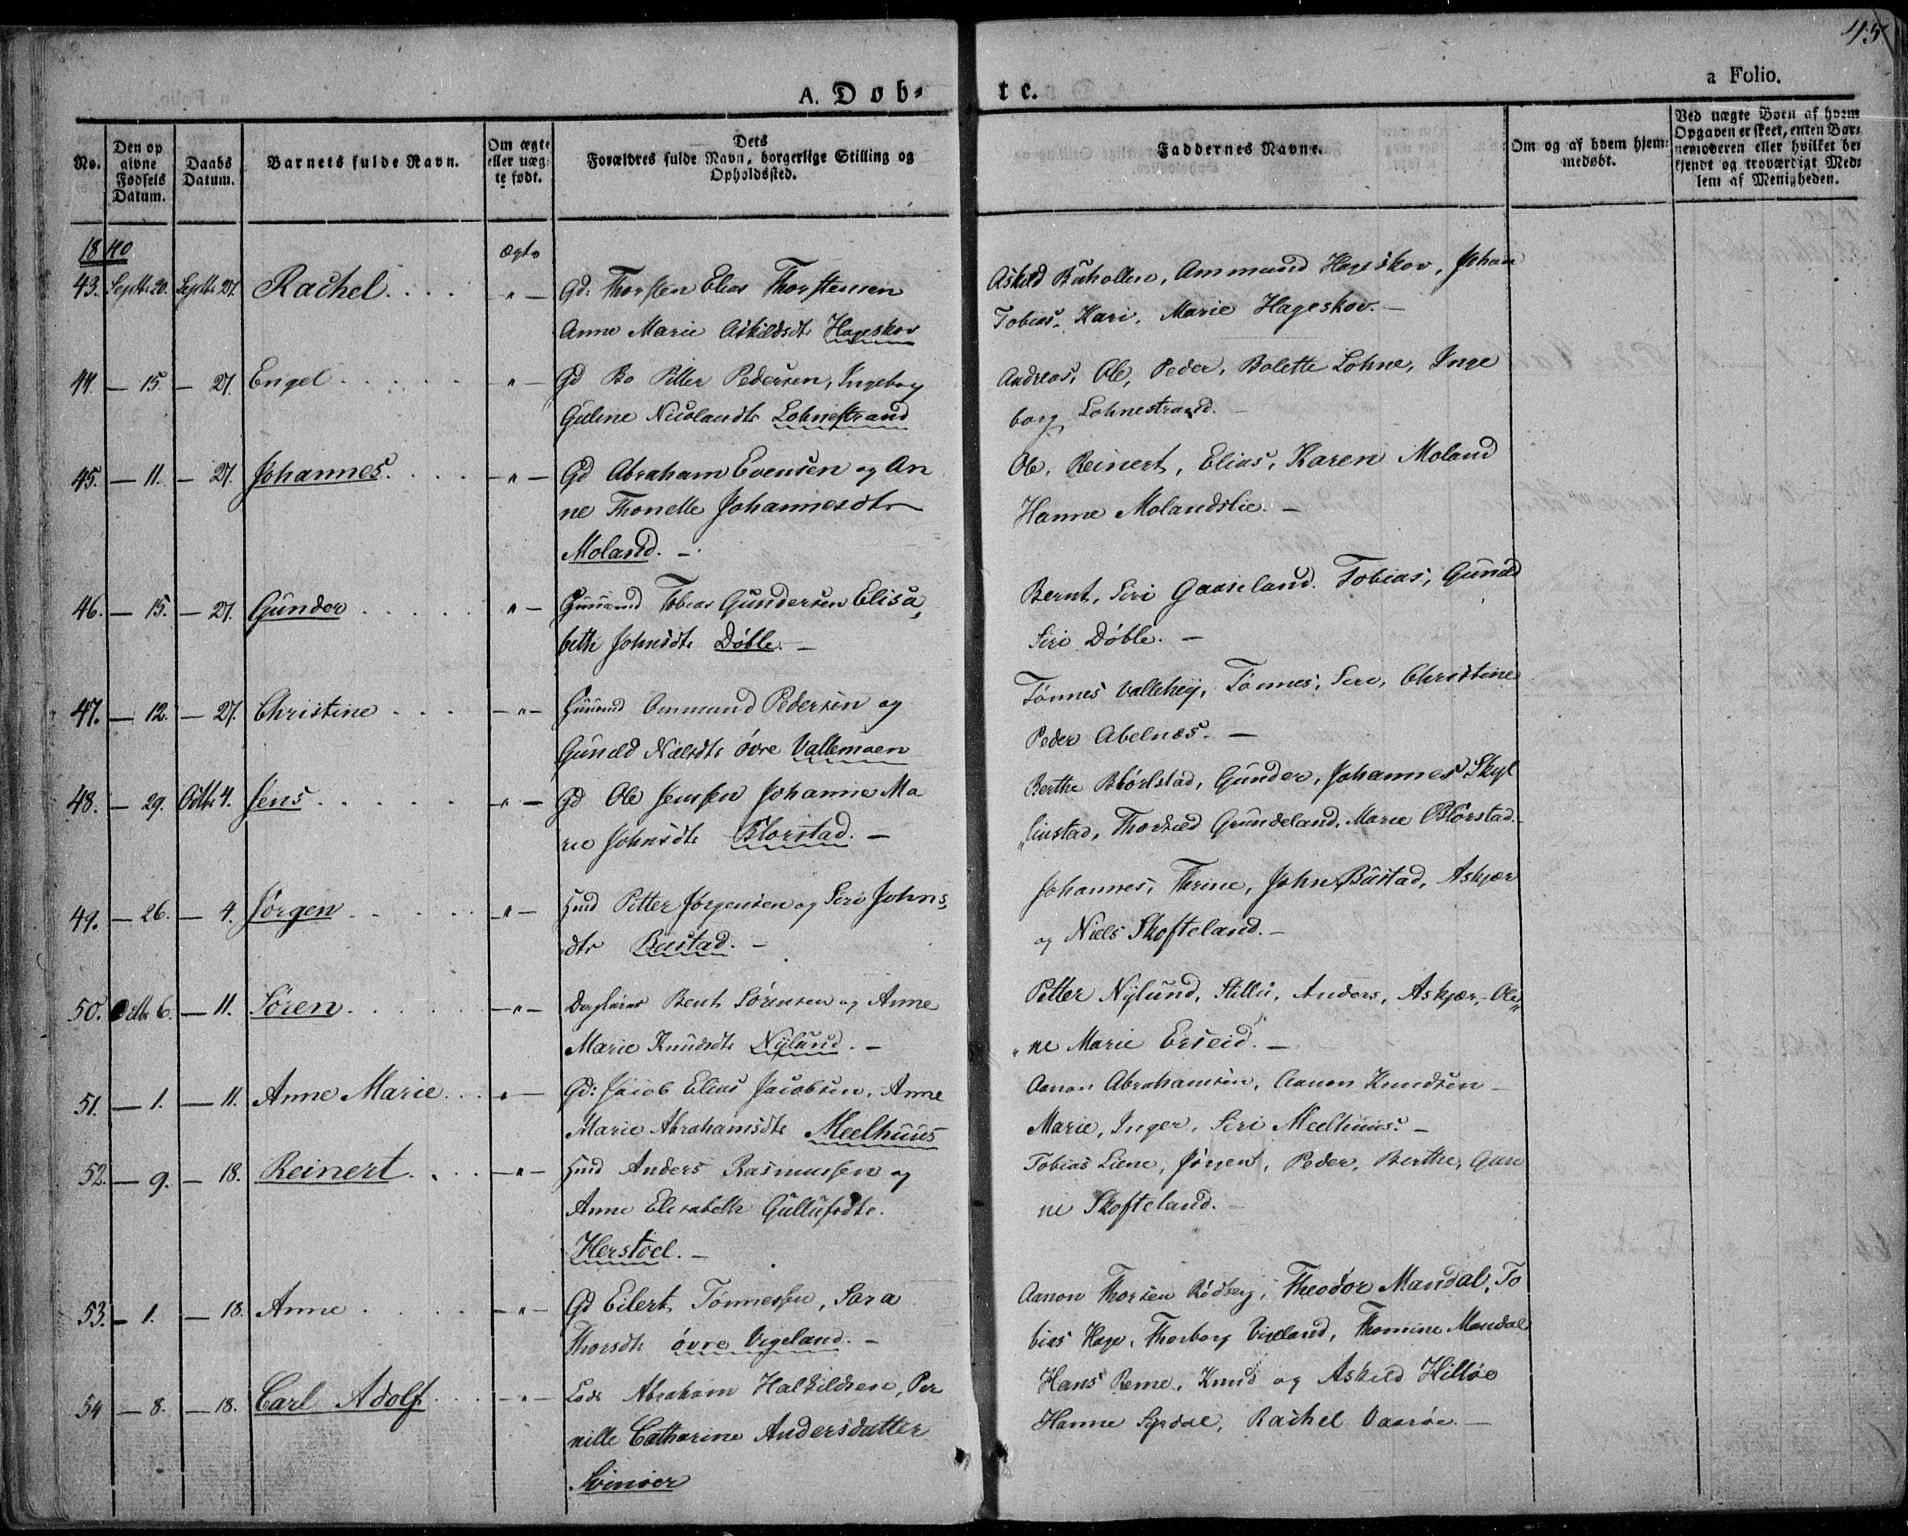 45
a Folio.
A. Døb- te.
No.
Den opgivne Fødsels Datum.
Daabs Datum.
Barnets fulde Navn.
Om ægte eller uægte født.
Dets Forældres fulde Navn, borgerlige Stilling og Opholdssted.
Faddernes Navne.
Om og af hvem hjemmedøbt.
Ved uægte Børn af hvem Opgaven er skeet, enten Barnemoderen eller hvilket bekjendt og troværdigt Medlem af Menigheden.
1840 Ægte
43. Septbr 20. Septbr 27. Rachel. " Gd: Thorsten Elias Thorstensen
Anne Marie Askildsdtr Hageskov
Askild Ammund Hageskov, Johan
Tobias, Kari, Marie Hageskov. —
44. — 15. — 27. Engel " Gd Bo Petter Pedersen, Ingeborg
Guline Nicolaisdtr Lohnestrand
Andreas, Ole, Peder, Bolette Lohne, Inge
borg Lohnestrand. —
45. — 11. — 27. Johannes. — " — Gd Abraham Evensen og An
ne Thonette Johannesdtr
Moland. —
Ole, Reinert, Elias, Karen Moland
Hanne Molandslie. —
46. — 15. — 27. Gunder " — Tobias Gundersen Elisa
beth Johnsdtr Døble. —
Bernt, Siri Gaaseland. Tobias, Gunild
Siri Døble. —
47. — 12. — 27. Christine — " — Ommund Pedersen og
Gunild Nielsdtr øvre Vallemoen
Tønnes Valleheij, Tønnes, Siri, Christine
Peder Abelnæs. —
48. — 29. Octbr 4. Jens — " — Gd Ole Jenssen Johanne Ma
rie Johnsdtr Blørstad. —
Berthe Blørstad, Gunder, Johannes Skjl
linstad, Thorkild Grundeland, Marie Blørstad. —
49. — 26. — 4. Jørgen — " — Hmd Petter Jørgensen og Siri Johns
dtr Bustad. —
Johannes, Thrine, John Bustad, Askjær
og Niels Skofteland. —
50. Octbr 6. — 11. Søren — " — Daglejer Bent Sørensen og Anne
Marie Knudsdtr Nylund. —
Petter Nylund, Anders, Askjær, Ole
ne Marie Erseid. —
51. — 1. — 11. Anne Marie " — Gd: Jacob Elias Jacobsen, Anne
Marie Abrahamsdtr Meelhuus
Aanon Abrahamsen, Aanon Knudsen
Marie, Inger, Siri Meelhuus. —
52. — 9. — 18. Reinert. — " — Hmd Anders Rasmussen og
Anne Elisabeth Gullufsdtr.
Herstoel. —
Tobias Liene, Jørgen, Peder, Berthe, Gun
ne Skofteland. —
53. — 1. — 18. Anne — " — Gd Eilert Tønnessen, Sara
Thorsdtr øvre Vigeland. —
Aanon Thorsen Rødberg, Theodor Mandal, To
bias Hage, Thorborg Vigeland, Thomine Mandal
54 — 8. — 18. Carl Adolf — " — Lods Abraham Halkildsen, Per
nille Catharine Andersdatter
Svinøer
Hans Reme, Knud og Askild Hilløe
Hanne Syrdal, Rachel Vaarøe. —